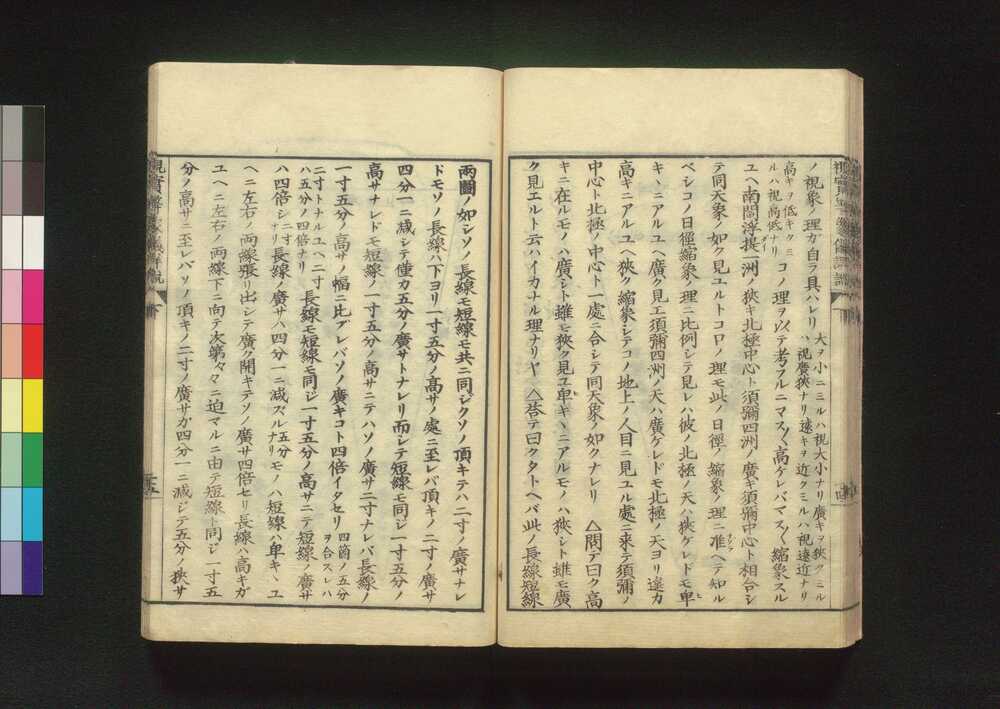 ノ視象ノ理ガ自ラ具ハレリ 大ヲ小ニミルハ視大小ナリ廣キヲ狹クミル
ハ視廣狹ナリ遠キヲ近クミルハ視遠近ナリ
高キヲ低キクミ
ルハ視高低ナリ コノ理ヲ以テ考フルニマス〱高ケレバマス〱縮象スル
ユヘ南閻浮提一洲ノ狹キ北極中心ト須彌四洲ノ廣キ須彌中心ト相合シ
テ同天象ノ如ク見ユルトコロノ理モ此ノ日徑ノ縮象ノ理ニ准ヘテ知ル
ベシコノ日徑縮象ノ理ニ比例シテ見レハ彼ノ北極ノ天ハ狹ケレドモ卑
キヽニアルユヘ廣ク見エ須彌四洲ノ天ハ廣ケレドモ北極ノ天ヨリ遠カ
高キニアルユヘ狹ク縮象シテコノ地上ノ人目ニ見ユル處ニ来テ須彌ノ
中心ト北極ノ中心ト一處ニ合シテ同天象ノ如クナレリ △問テ曰ク高
キニ在ルモノハ廣シト雖モ狹ク見ユ卑キヽニアルモノハ狹シト雖モ廣
ク見エルト云ハイカナル理ナリヤ △荅テ曰クタトヘバ此ノ長線短線
兩圖ノ如シソノ長線モ短線モ共ニ同ジクソノ頂キテハ二寸ノ廣サナレ
ドモソノ長線ハ下ヨリ一寸五分ノ高サノ處ニ至レバ頂キノ二寸ノ廣サ
四分一ニ減シテ僅カ五分ノ廣サトナレリ而シテ短線モ同ジ一寸五分ノ
高サナレドモ短線ノ一寸五分ノ高サニテハソノ廣サ二寸ナレバ長線ノ
一寸五分ノ高サノ幅ニ比ブレバソノ廣キコト四倍イタセリ 四箇ノ五分
ヲ合スレハ
二寸トナルユヘニ二寸
ハ五分ノ四倍ナリ 長線モ短線モ同ジ一寸五分ノ高サニテ短線ノ廣サ
ハ四倍シ 長線ノ廣サハ四分一ニ減ズル モノハ短線ハ卑キヽユ
ヘニ左右ノ両線張リ出シテ廣ク開キテソノ廣サ四倍セリ長線ハ高キガ
ユヘニ左右ノ両線下ニ向テ次第々々ニ迫マルニ由テ短線ト同ジ一寸五
分ノ高サニ至レバソノ頂キノ二寸ノ廣サガ四分一ニ減シテ五分ノ狹サ